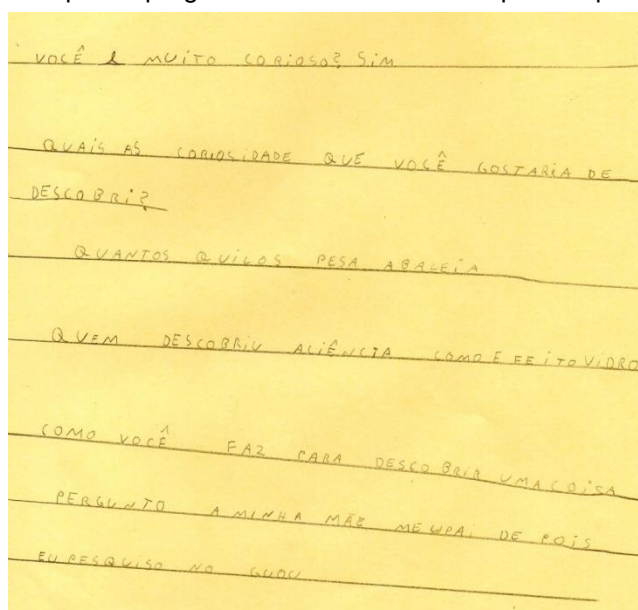 VOCÊ É MUITO CORIOSO? SIM
QUAIS AS CORIOSIDADE QUE VOCÊ GOSTARIA DE
DESCOBRI?
QUANTOS QUILOS PESA ABALEIA
QUEM DESCOBRIU ALIÊNCIA COMO E FEITO VIDRO
COMO VOCÊ FAZ PARA DESCOBRIR UMACOISA
PERGUNTO AMINHA MÃE MEUPAI DE POIS
EU PESQUISO NO GUOU